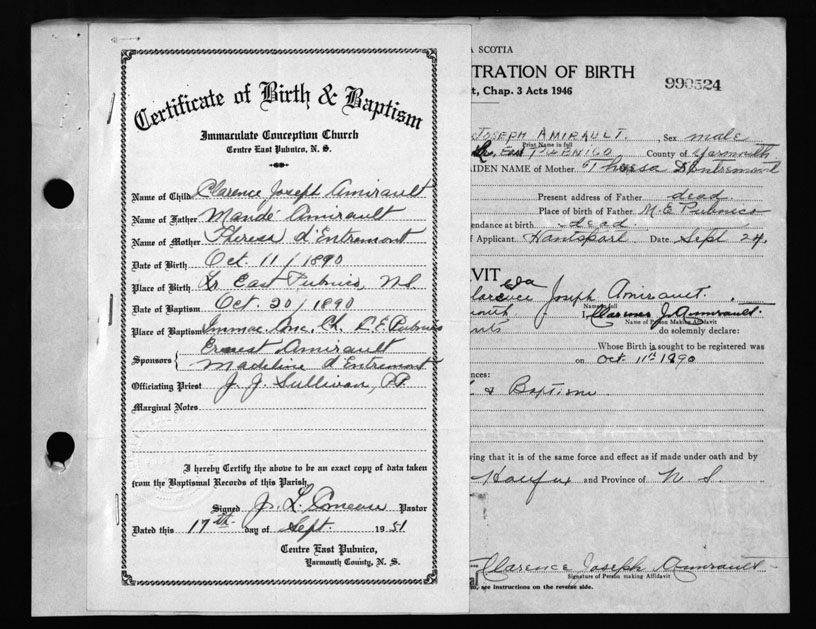 Certificate of Birth & Baptism
Immaculate Conception Church
Centre East Pubnico, N. S.
Name of Child Clarence Joseph Amirault
Name of Father Mandé Amirault
Name of Mother Theresa d'Entremont
Date of Birth Oct. 11 / 1890
Place of Birth Lr. East Pubnico, N S
Date of Baptism Oct. 20 / 1890
Place of Baptism Immac. Conc. Ch. C. E. Pubnico
Sponsors { Ernest Amirault
Madeline d'Entremont
Officiating Priest J. J. Sullivan, P.P.
Marginal Notes
I hereby Certify the above to be an exact copy of data taken
from the Baptismal Records of this Parish
Signed Pastor
Dated this 17th day of Sept. 1951
Centre East Pubnico,
Yarmouth County, N. S.
A SCOTIA
TRATION OF BIRTH
t, Chap. 3 Acts 1946
990524
JOSEPH AMIRAULT. Sex male
Print Name in full
EAST PUBNICO County of Yarmouth
AIDEN NAME of Mother Theresa D'Entremont
Present address of Father dead.
Place of birth of Father M. E. Pubnico
endance at birth dead.
f Applicant Hantsport Date Sept 24.
VIT
Clarence Joseph Amirault.
Name in full
I, Clarence J. Amirault.
Name of Person Making Affidavit
do solemnly declare:
Whose Birth is sought to be registered was
on Oct. 11th 1890
nces:
& Baptism
ving that it is of the same force and effect as if made under oath and by
Halifax and Province of N S.
Clarence Joseph Amirault
Signature of Person making Affidavit
, see instructions on the reverse side.